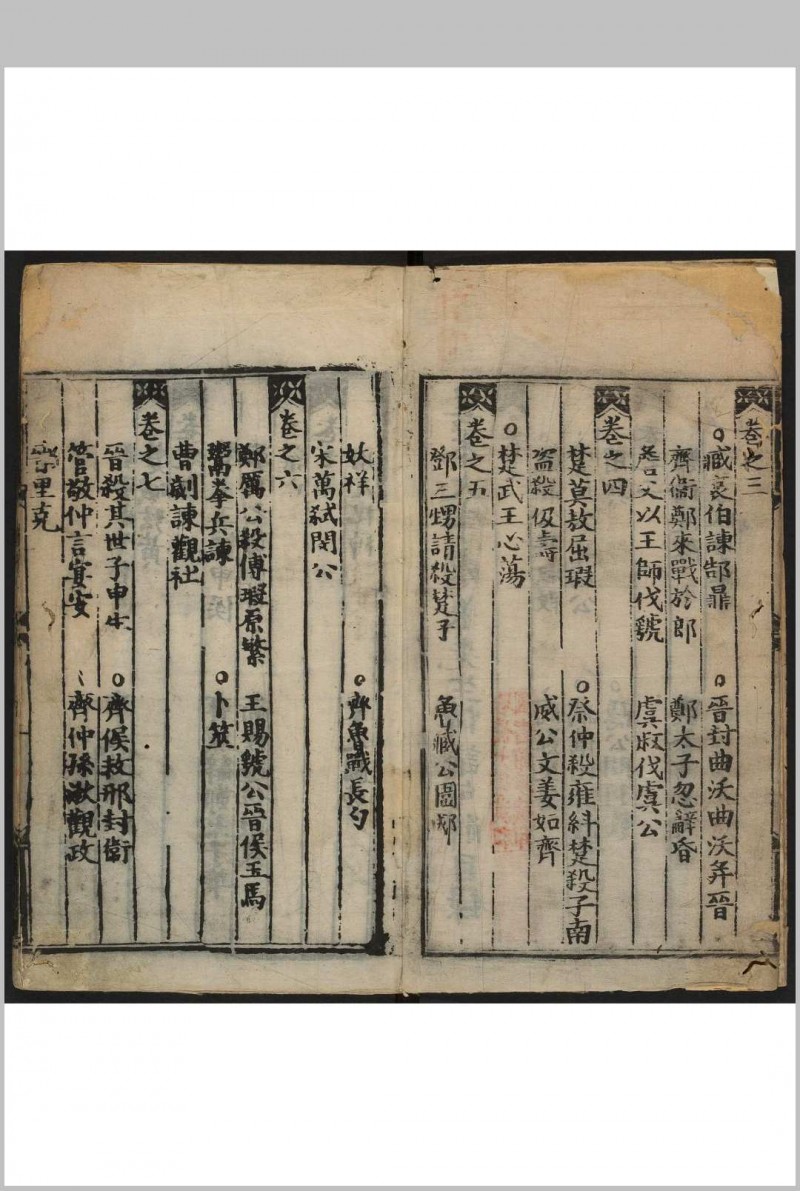 卷之三
○臧哀伯諫郜鼎　○晉封曲沃曲沃并晉
齊衞鄭来戰於郎　鄭太子忽辭昏
咎父以王師伐虢　虞叔伐虞公
卷之四
楚莫敖屈瑕　○祭仲殺雍糾楚殺子南
盗殺伋壽　威公文姜如齊
○楚武王心蕩
卷之五
鄧三甥請殺楚子　魯臧公圍郕
妖祥　○齊魯戰長勺
宋萬弑閔公
卷之六
鄭厲公殺傅瑕原繁　王賜虢公晉侯玉馬
鬻拳兵諫　○卜筮
曹劌諫觀社
卷之七
晉殺其世子申生　○齊侯救邢封衞
管敬仲言宴安　齊仲孫湫觀政
里克